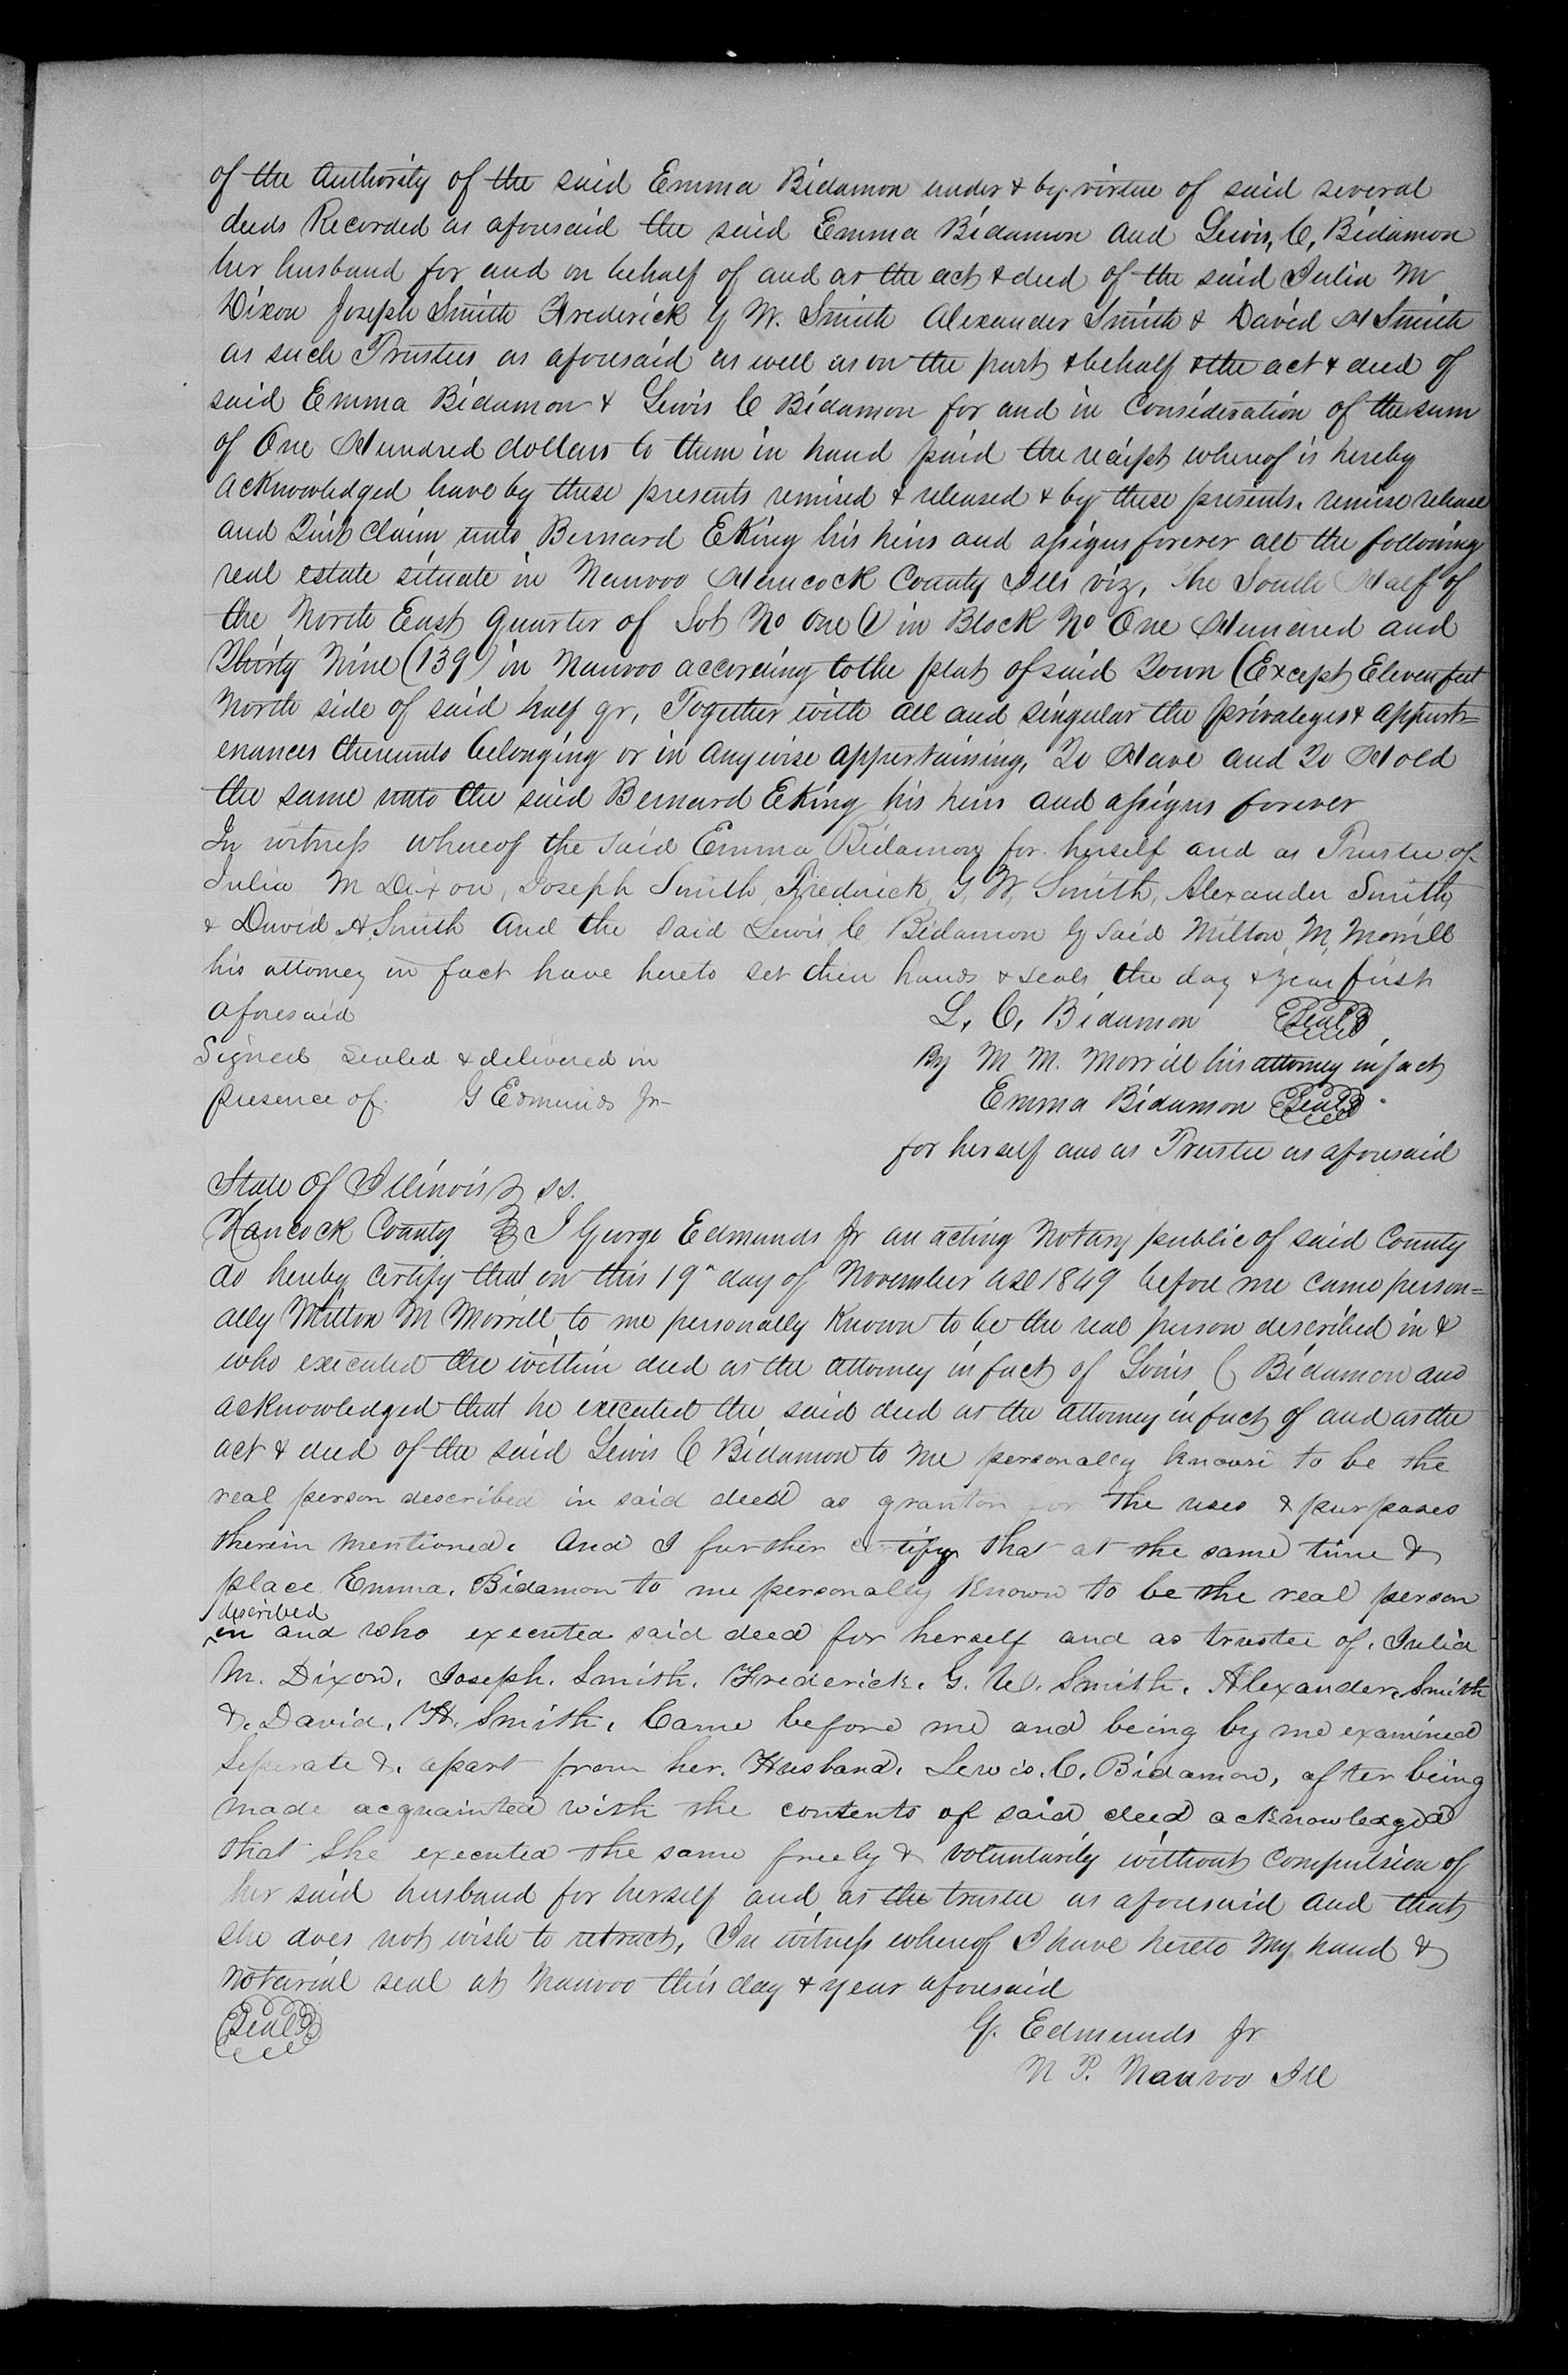 of the Authority of the said Emma Bidamon under & by virtue of said several
deeds Recorded as aforesaid the said Emma Bidamon and Lewis, C, Bidamon
her husband for and on behalf of and as the act & deed of the said Julia M
Dixon Joseph Smith Frederick G W. Smith Alexander Smith & David H Smith
as such Trustees as aforesaid as well as on the part & behalf & the act & deed of
said Emma Bidamon & Lewis C Bidamon for and in Consideration of the sum
of One Hundred dollars to them in hand paid the reciept whereof is hereby
acknowledged have by these presents remised & released & by these presents, remise release
and Quit Claim unto Bernard Eking his heirs and assigns forever all the following
real estate situate in Nauvoo Hancock County Ills viz, The South Half of
the North East quarter of Lot No One (1) in Block No One Hundred and
Thirty Nine (139) in Nauvoo according to the plat of said Town (Except Eleven feet
North side of said half qr, Together with all and singular the privaleges & appurt=
enances thereunto belonging or in anywise appertaining, To Have and To Hold
the same unto the said Bernard Eking his heirs and assigns forever
In witness whereof the said Emma Bidamon for herself and as Trustee of
Julia M Dixon, Joseph Smith, Fredrick, G, W, Smith, Alexander Smith,
& David H. Smith And the said Lewis C Bidamon by said Milton, M, Morrill
his attorney in fact have hereto set their hands & seals the day & year first
aforesaid L, C, Bidamon (Seal)
Signed Sealed & delivered in By M M. Morrill his attorney in fact
presence of G Edmunds Jr Emma Bidamon (Seal)
for herself and as Trustee as aforesaid
State of Illinois } ss.
Hancock County } I George Edmunds Jr an acting Notary public of said County
do hereby certify that on this 19" day of November A.D. 1849 before me came person=
ally Milton M Morrill to me personally Known to be the real person described in &
who executed the within deed as the attorney in fact of Lewis C Bidamon and
acknowledged that he executed the said deed as the attorney in fact of and as the
act & deed of the said Lewis C Bidamon to me personally known to be the
real person described in said deed as grantor for the uses & purposes
therein mentioned. And I further certify that at the same time &
place Emma, Bidamon to me personally Known to be the real person
described
in and who executed said deed for herself and as trustee of, Julia
M. Dixon, Joseph. Smith, Frederick. G. W. Smith, Alexander. Smith
&. David, H. Smith, Came before me and being by me examined
Seperate &. apart from her. Husband, Lewis. C. Bidamon, after being
made acquainted with the contents of said deed acknowledged
that She executed the same freely & voluntarily without compulsion of
her said husband for herself and as the trustee as aforesaid and that
she does not wish to retract, In witness whereof I have hereto my hand &
Notarial seal at Nauvoo this day & year aforesaid
(Seal) G. Edmunds Jr
N P. Nauvoo Ill